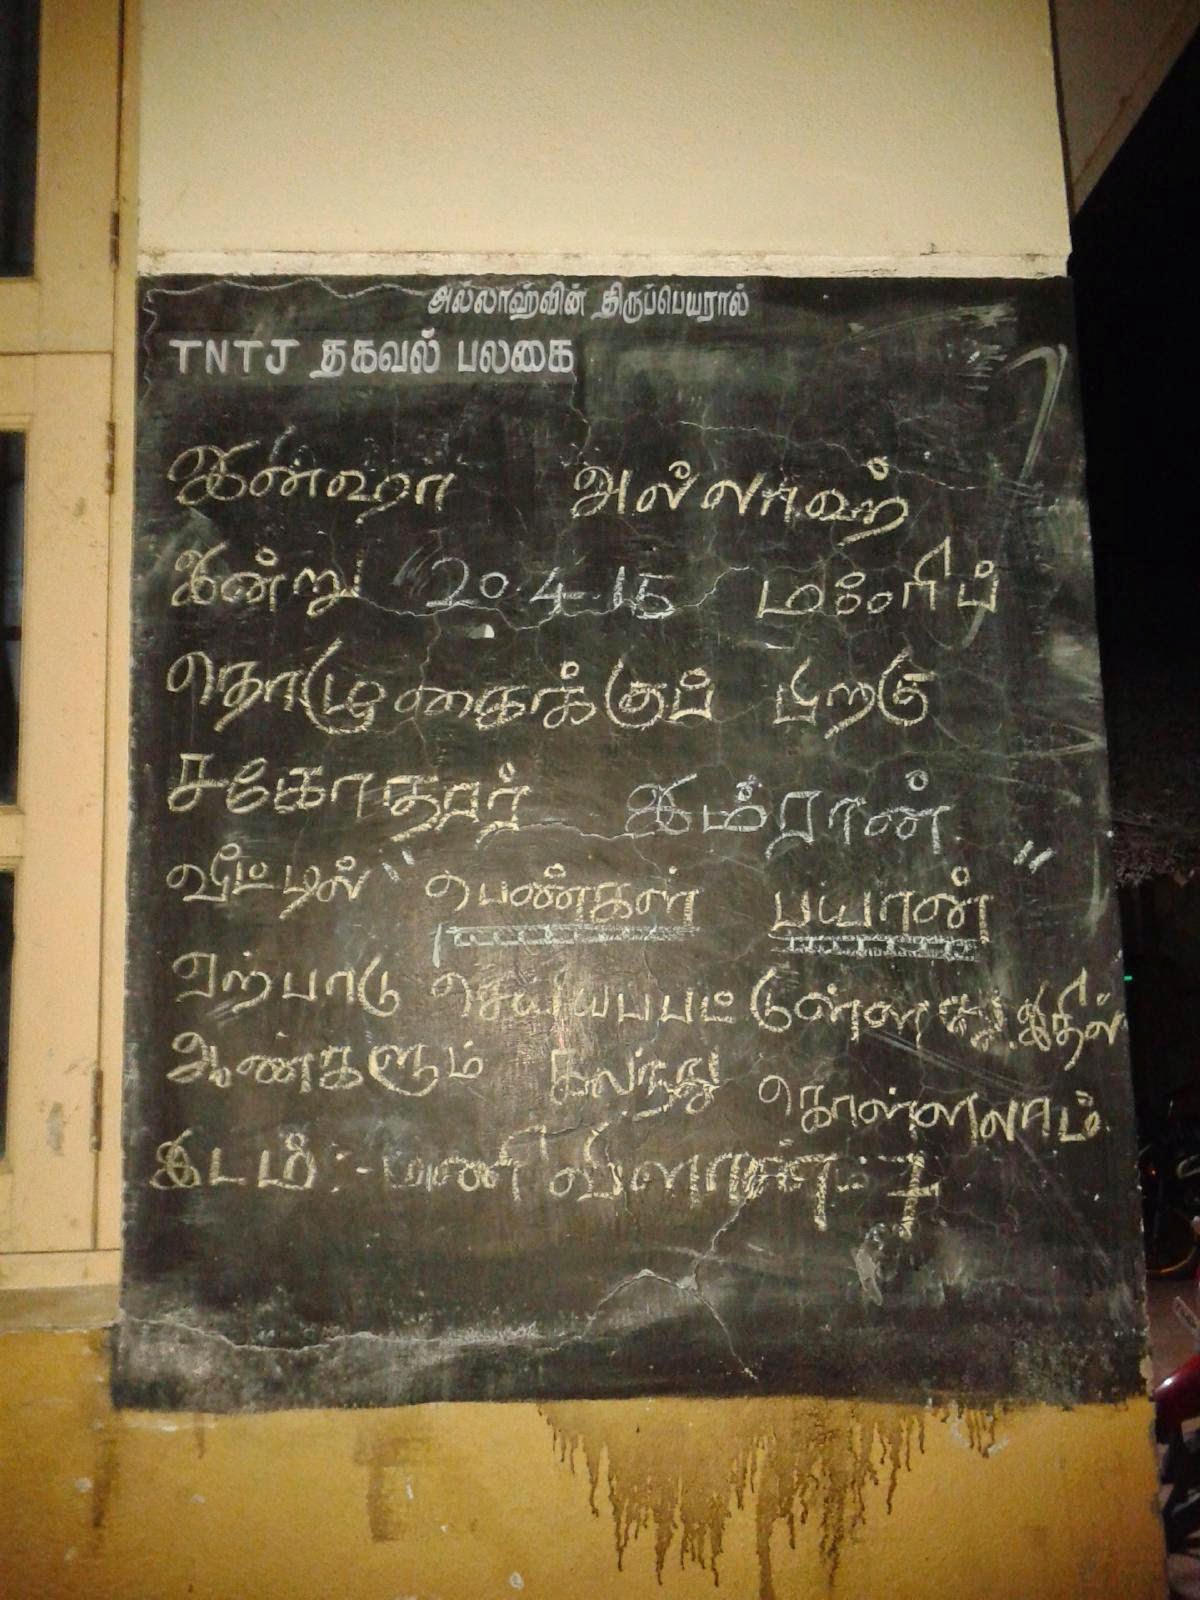 அல்லாஹ்வின் திருப்பெயரால்
TNTJ தகவல் பலகை
இன்ஷா அல்லாஹ்
இன்று 20.4.15 மஃரிப்
தொழுகைக்குப் பிறகு
சகோதரர் இம்ரான்
வீட்டில் "பெண்கள் பயான்"
ஏற்பாடு செய்யபபட்டுள்ளது. இதில்
ஆண்களும் கலந்து கொள்ளலாம்.
இடம் :- மணி விளாசன் 7